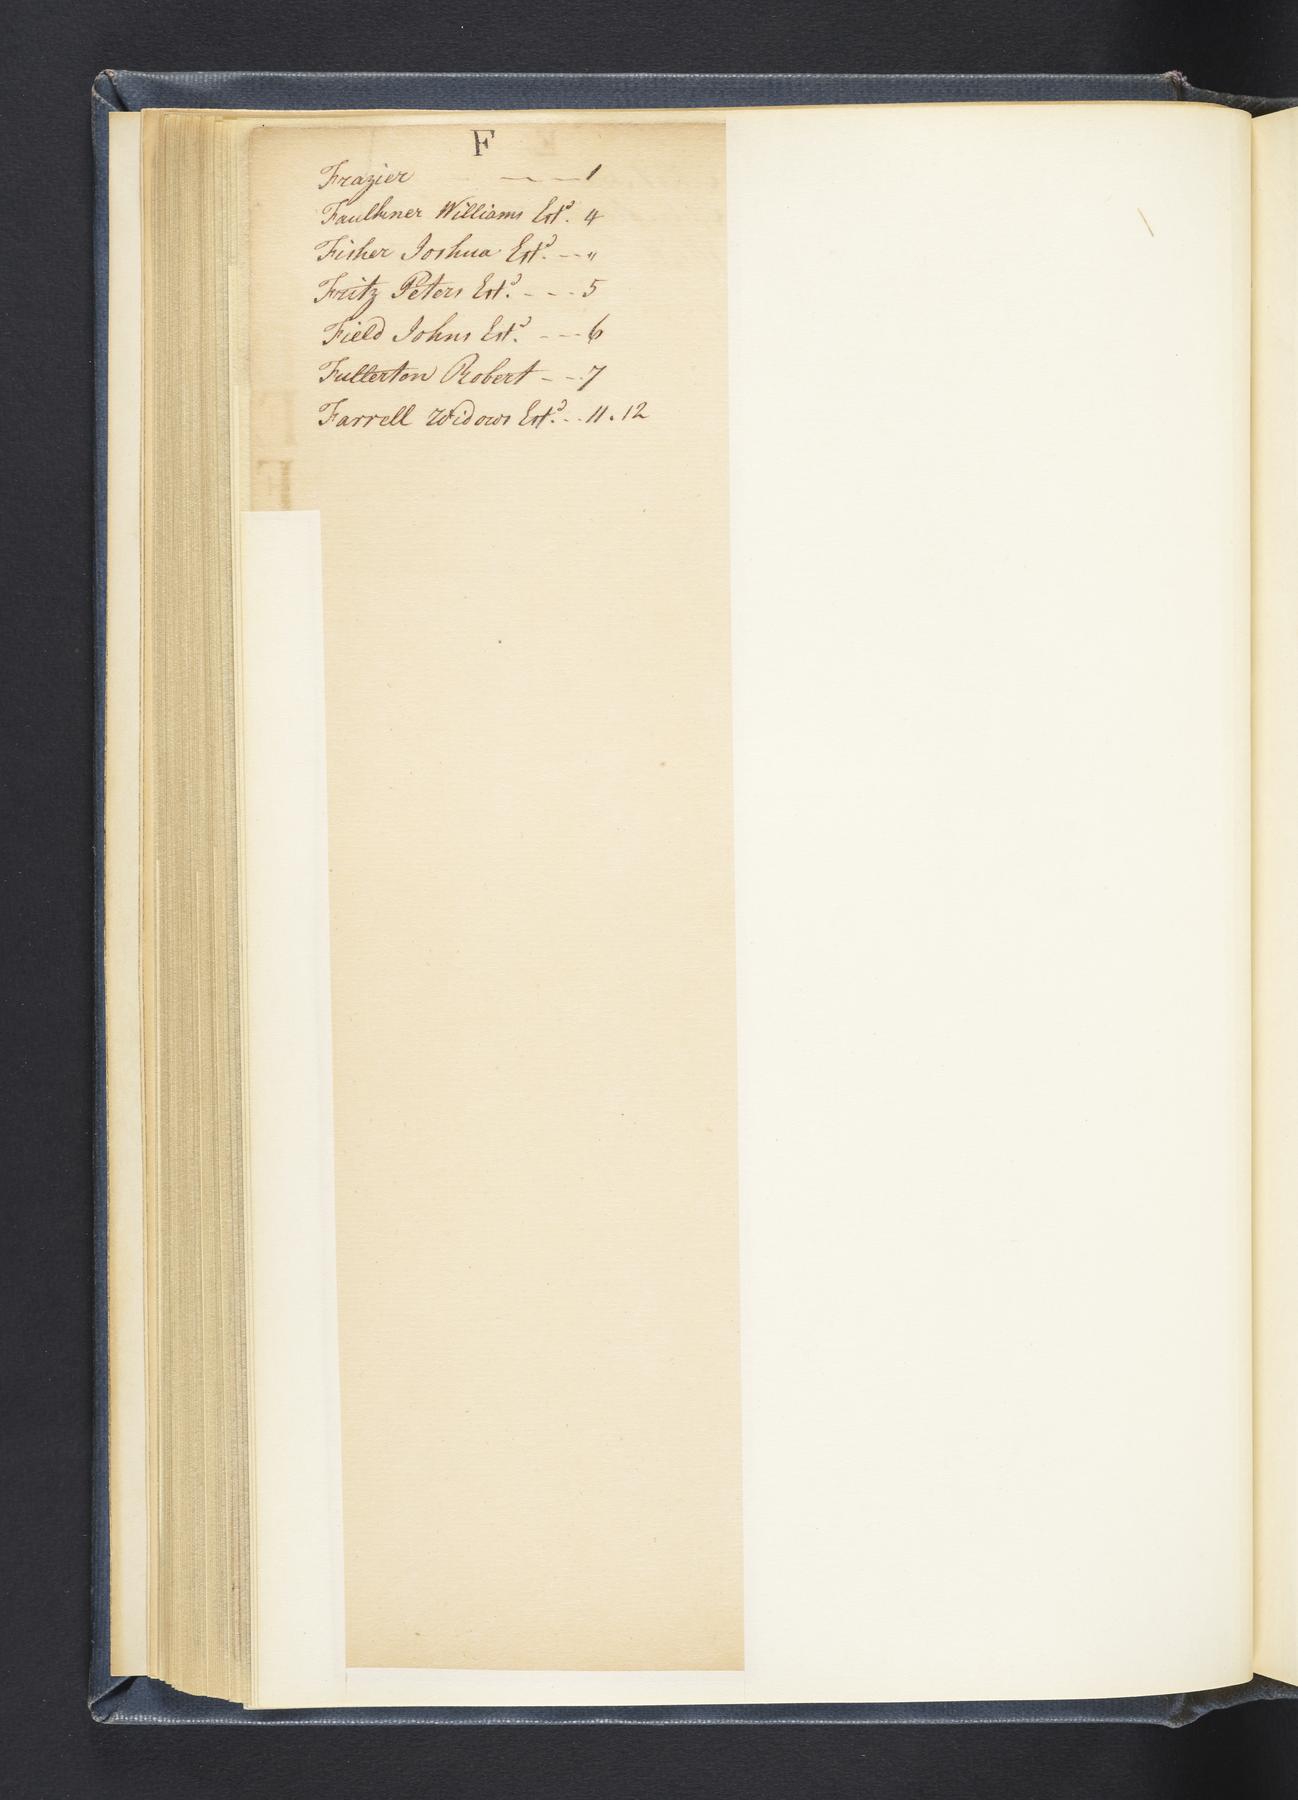 F
Frazier - - - 1
Faulkner Williams Estd. 4
Fisher Joshua Estd. - - "
Fritz Peters Estd. - - - 5
Field Johns Estd. - - - 6
Fullerton Robert - - . 7
Farrell Widows Estd. - . 11 . 12